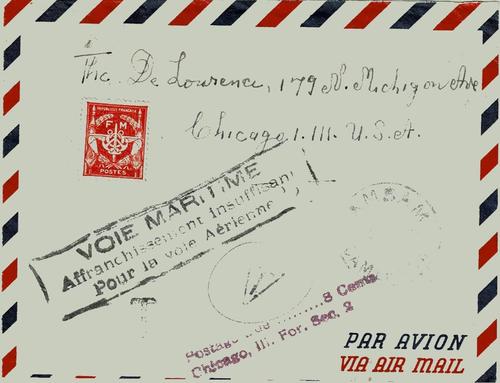 The. De Lourence, 179 N. Michigon Ave
Chicago. I. ll. U.S.A.
REPUBLIQUE FRANÇAISE
F M
POSTES
VOIE MARITIME
Affranchissement insuffisant
Pour la voie Aérienne
AMBAM
T
Postage due ........8 Cents
Chicago, Ill. For. Sec. 2
PAR AVION
VIA AIR MAIL